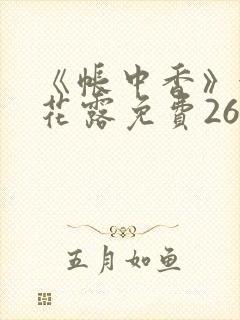 《帐中香》
花露免費26
五月如鱼